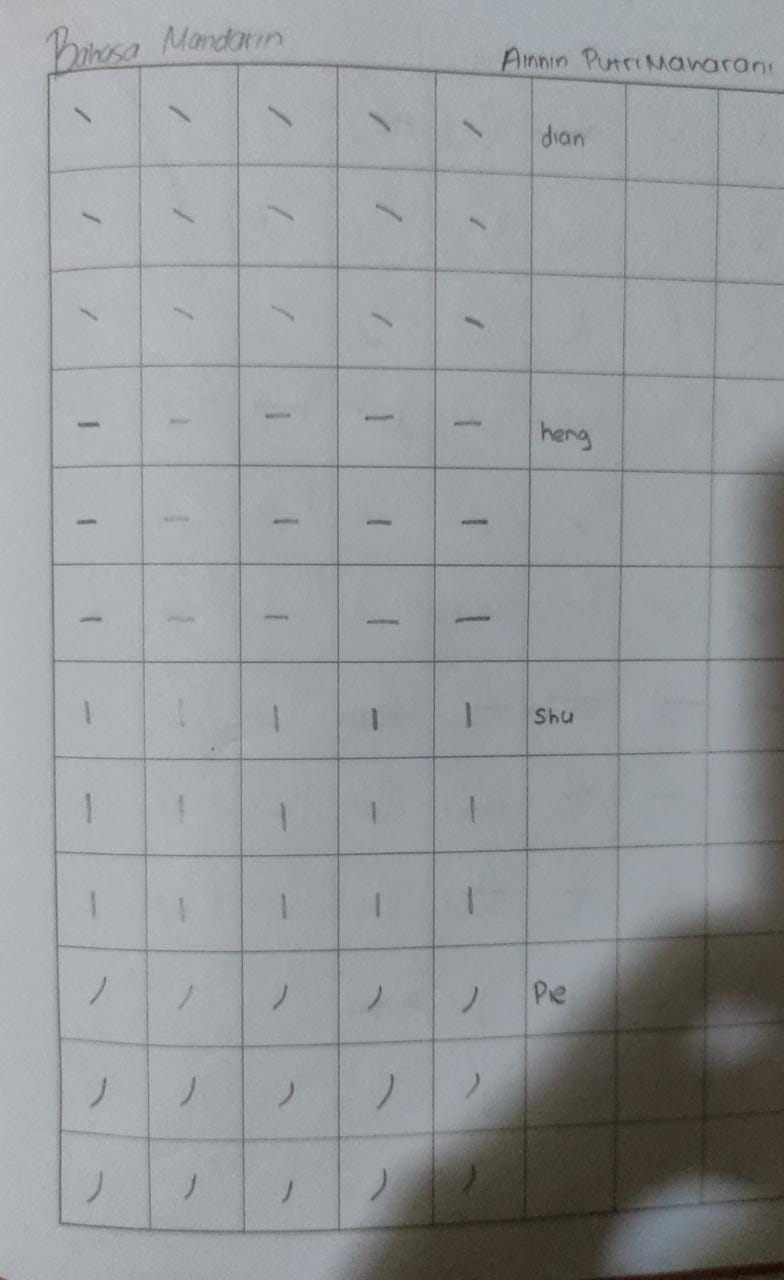 Bahasa Mandarin
Ainnin Putri Maharani
丶 丶 丶 丶 丶 dian
丶 丶 丶 丶 丶
丶 丶 丶 丶 丶
一 一 一 一 一 heng
一 一 一 一 一
一 一 一 一 一
丨 丨 丨 丨 丨 Shu
丨 丨 丨 丨 丨
丨 丨 丨 丨 丨
丿 丿 丿 丿 丿 Pie
丿 丿 丿 丿 丿
丿 丿 丿 丿 丿